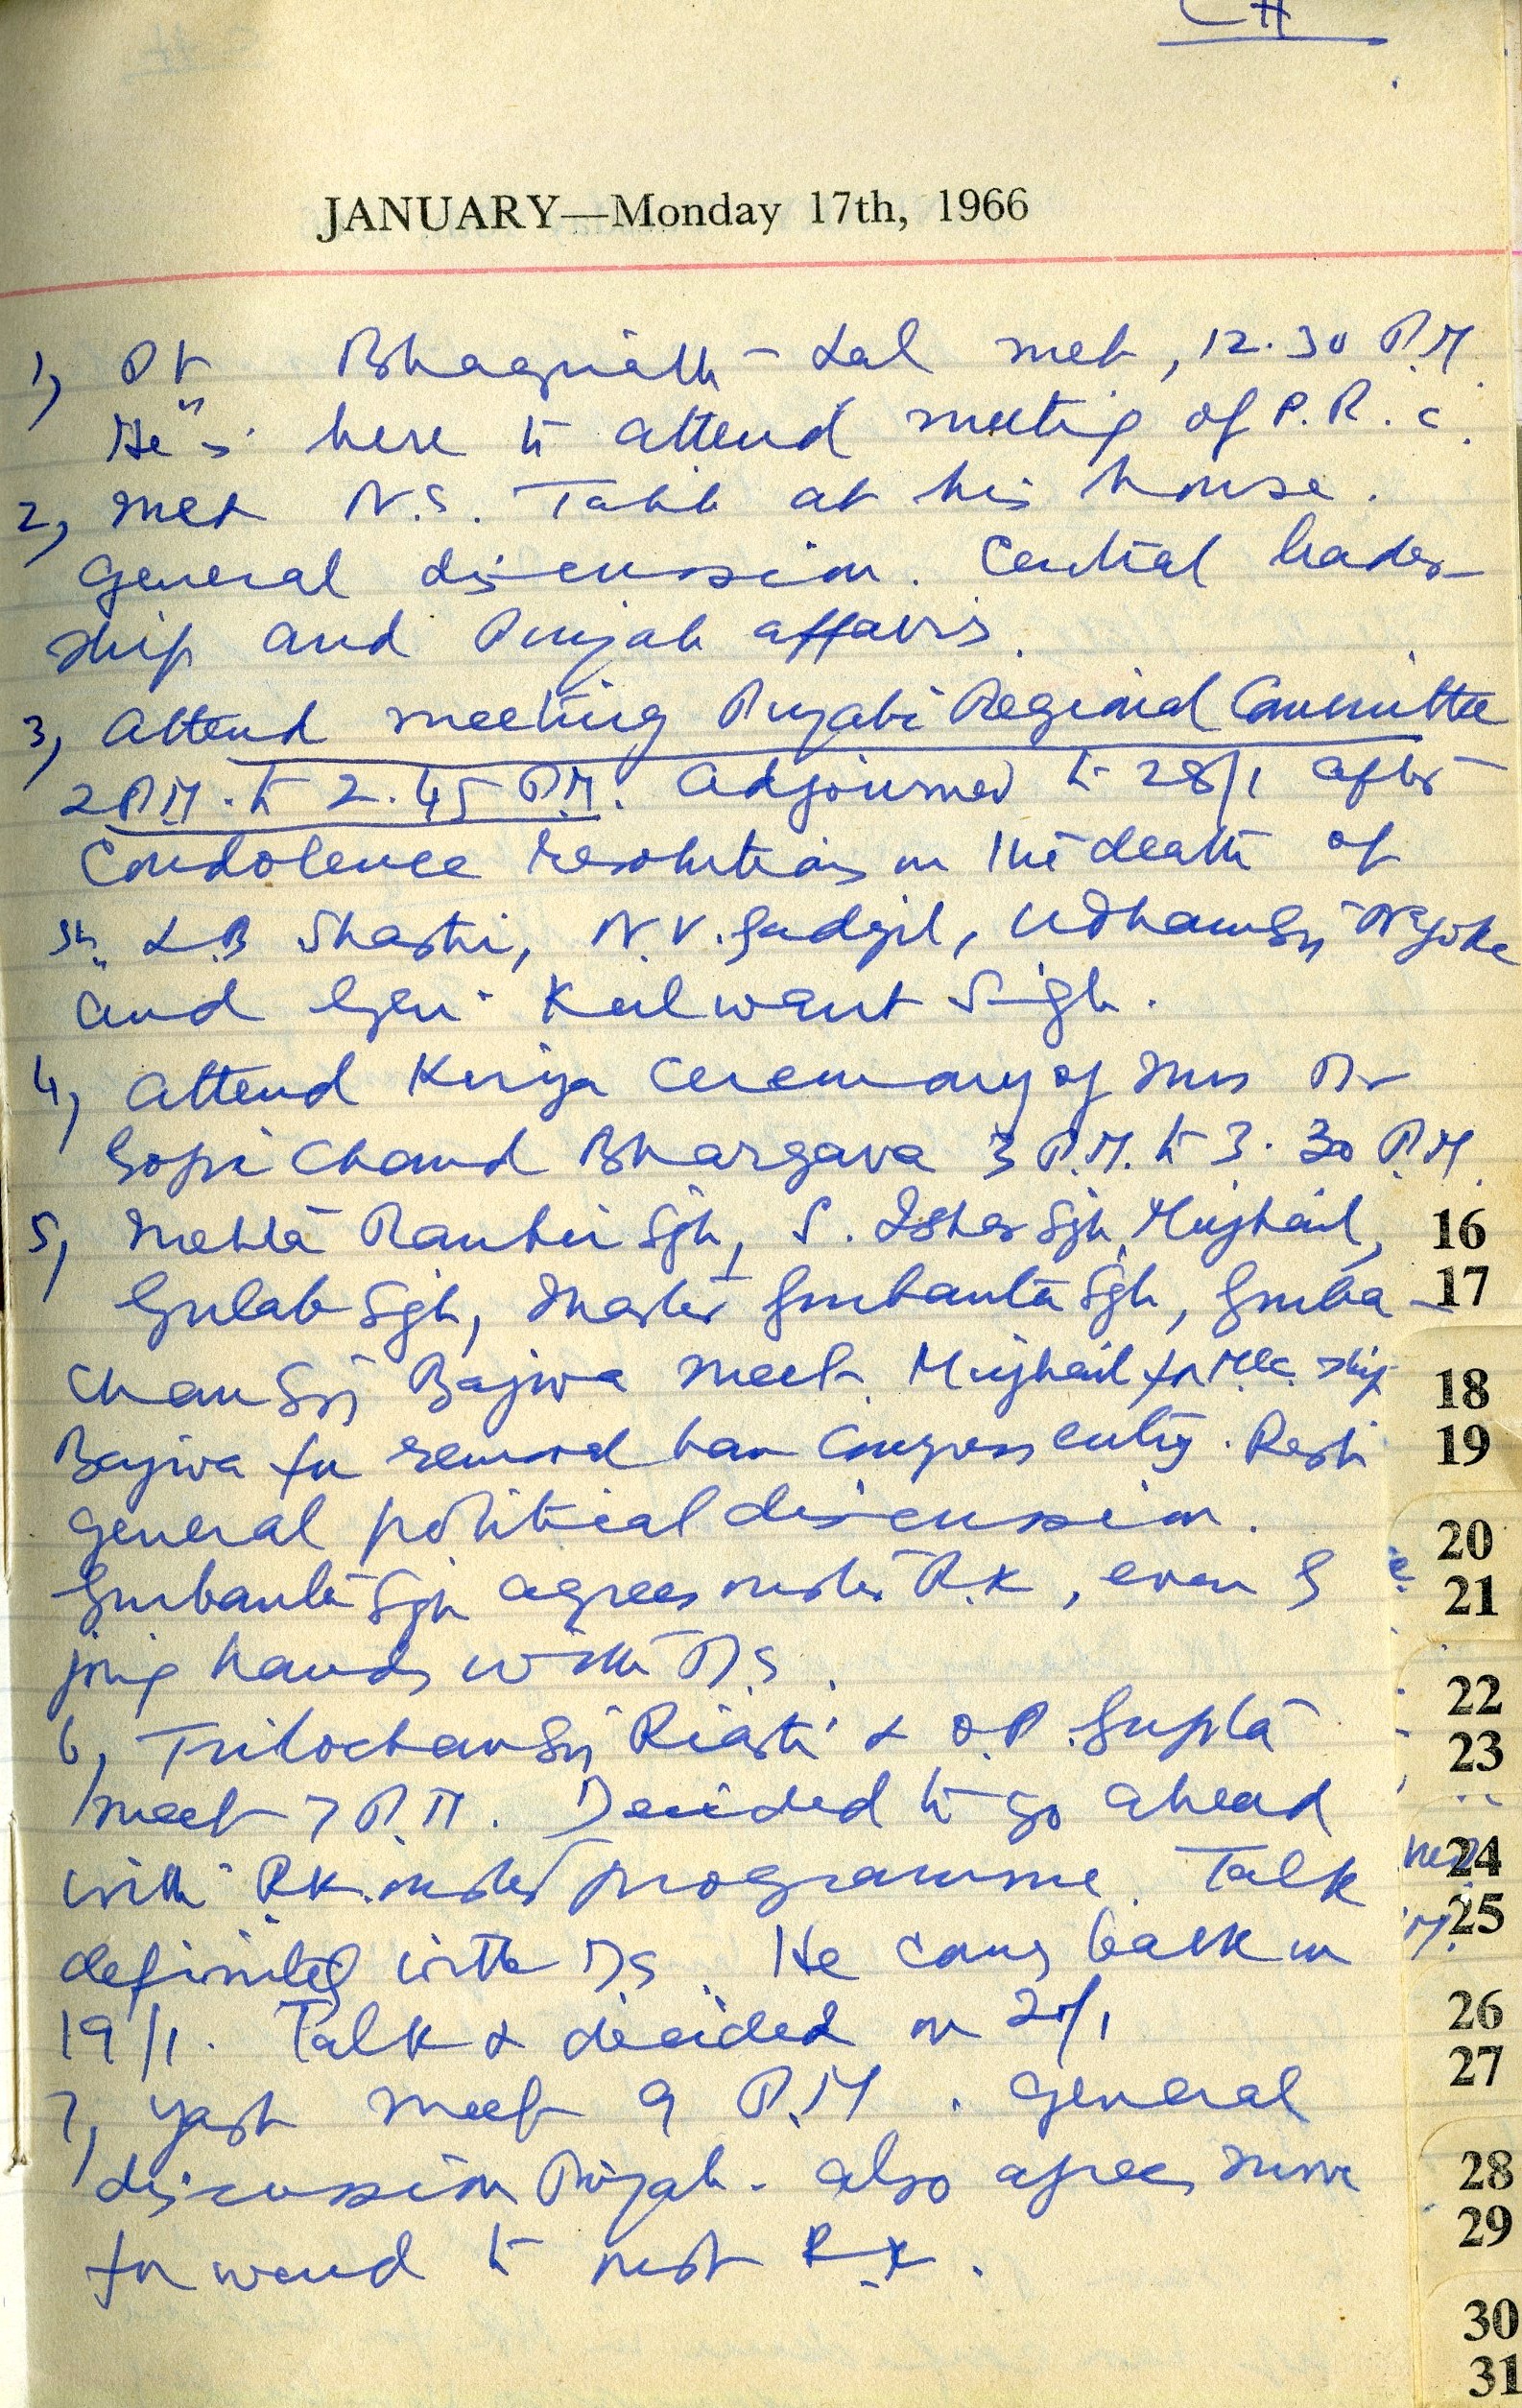 CH
JANUARY—Monday 17th, 1966
1, Pt Bhagnath Lal met, 12.30 P.M.
He is here to attend meeting of P.R.C.
2, met N.S. Talib at his house.
General discussion. Central leader-
ship and Punjab affairs.
3, Attend meeting Punjabi Regional Committee
2 P.M. to 2.45 P.M. Adjourned to 28/1 after
Condolence resolutions on the death of
Sh. L B Shastri, N.V. Gadgil, Udham Sgh Nagoke
and Gen. Kulwant Singh.
4, Attend Kirya Ceremony of Mrs Dr
Gopi Chand Bhargava 3 P.M. to 3.30 P.M.
5, Mehta Ranbir Sgh, S. Isher Sgh Mujhail,
Gulab Sgh, Master Gurbanta Sgh, Gurba-
chan Sgh Bajwa meet. Mujhail for M.L.C. ship
Bajwa for removal ban Congress entry. Rest
general political discussion.
Gurbanta Sgh agrees R.K., even
joing hands with D.S.
6, Trilochan Sgh Riasti & O.P. Gupta
meet 7 P.M. Decided to go ahead
with R.K. programme. Talk
definitely with DS. He coms back on
19/1. Talk & decided on 20/1
7, Yash meet 9 P.M. General
discussion Punjab. Also agrees move
forward to R.K.
16
17
18
19
20
21
22
23
24
25
26
27
28
29
30
31